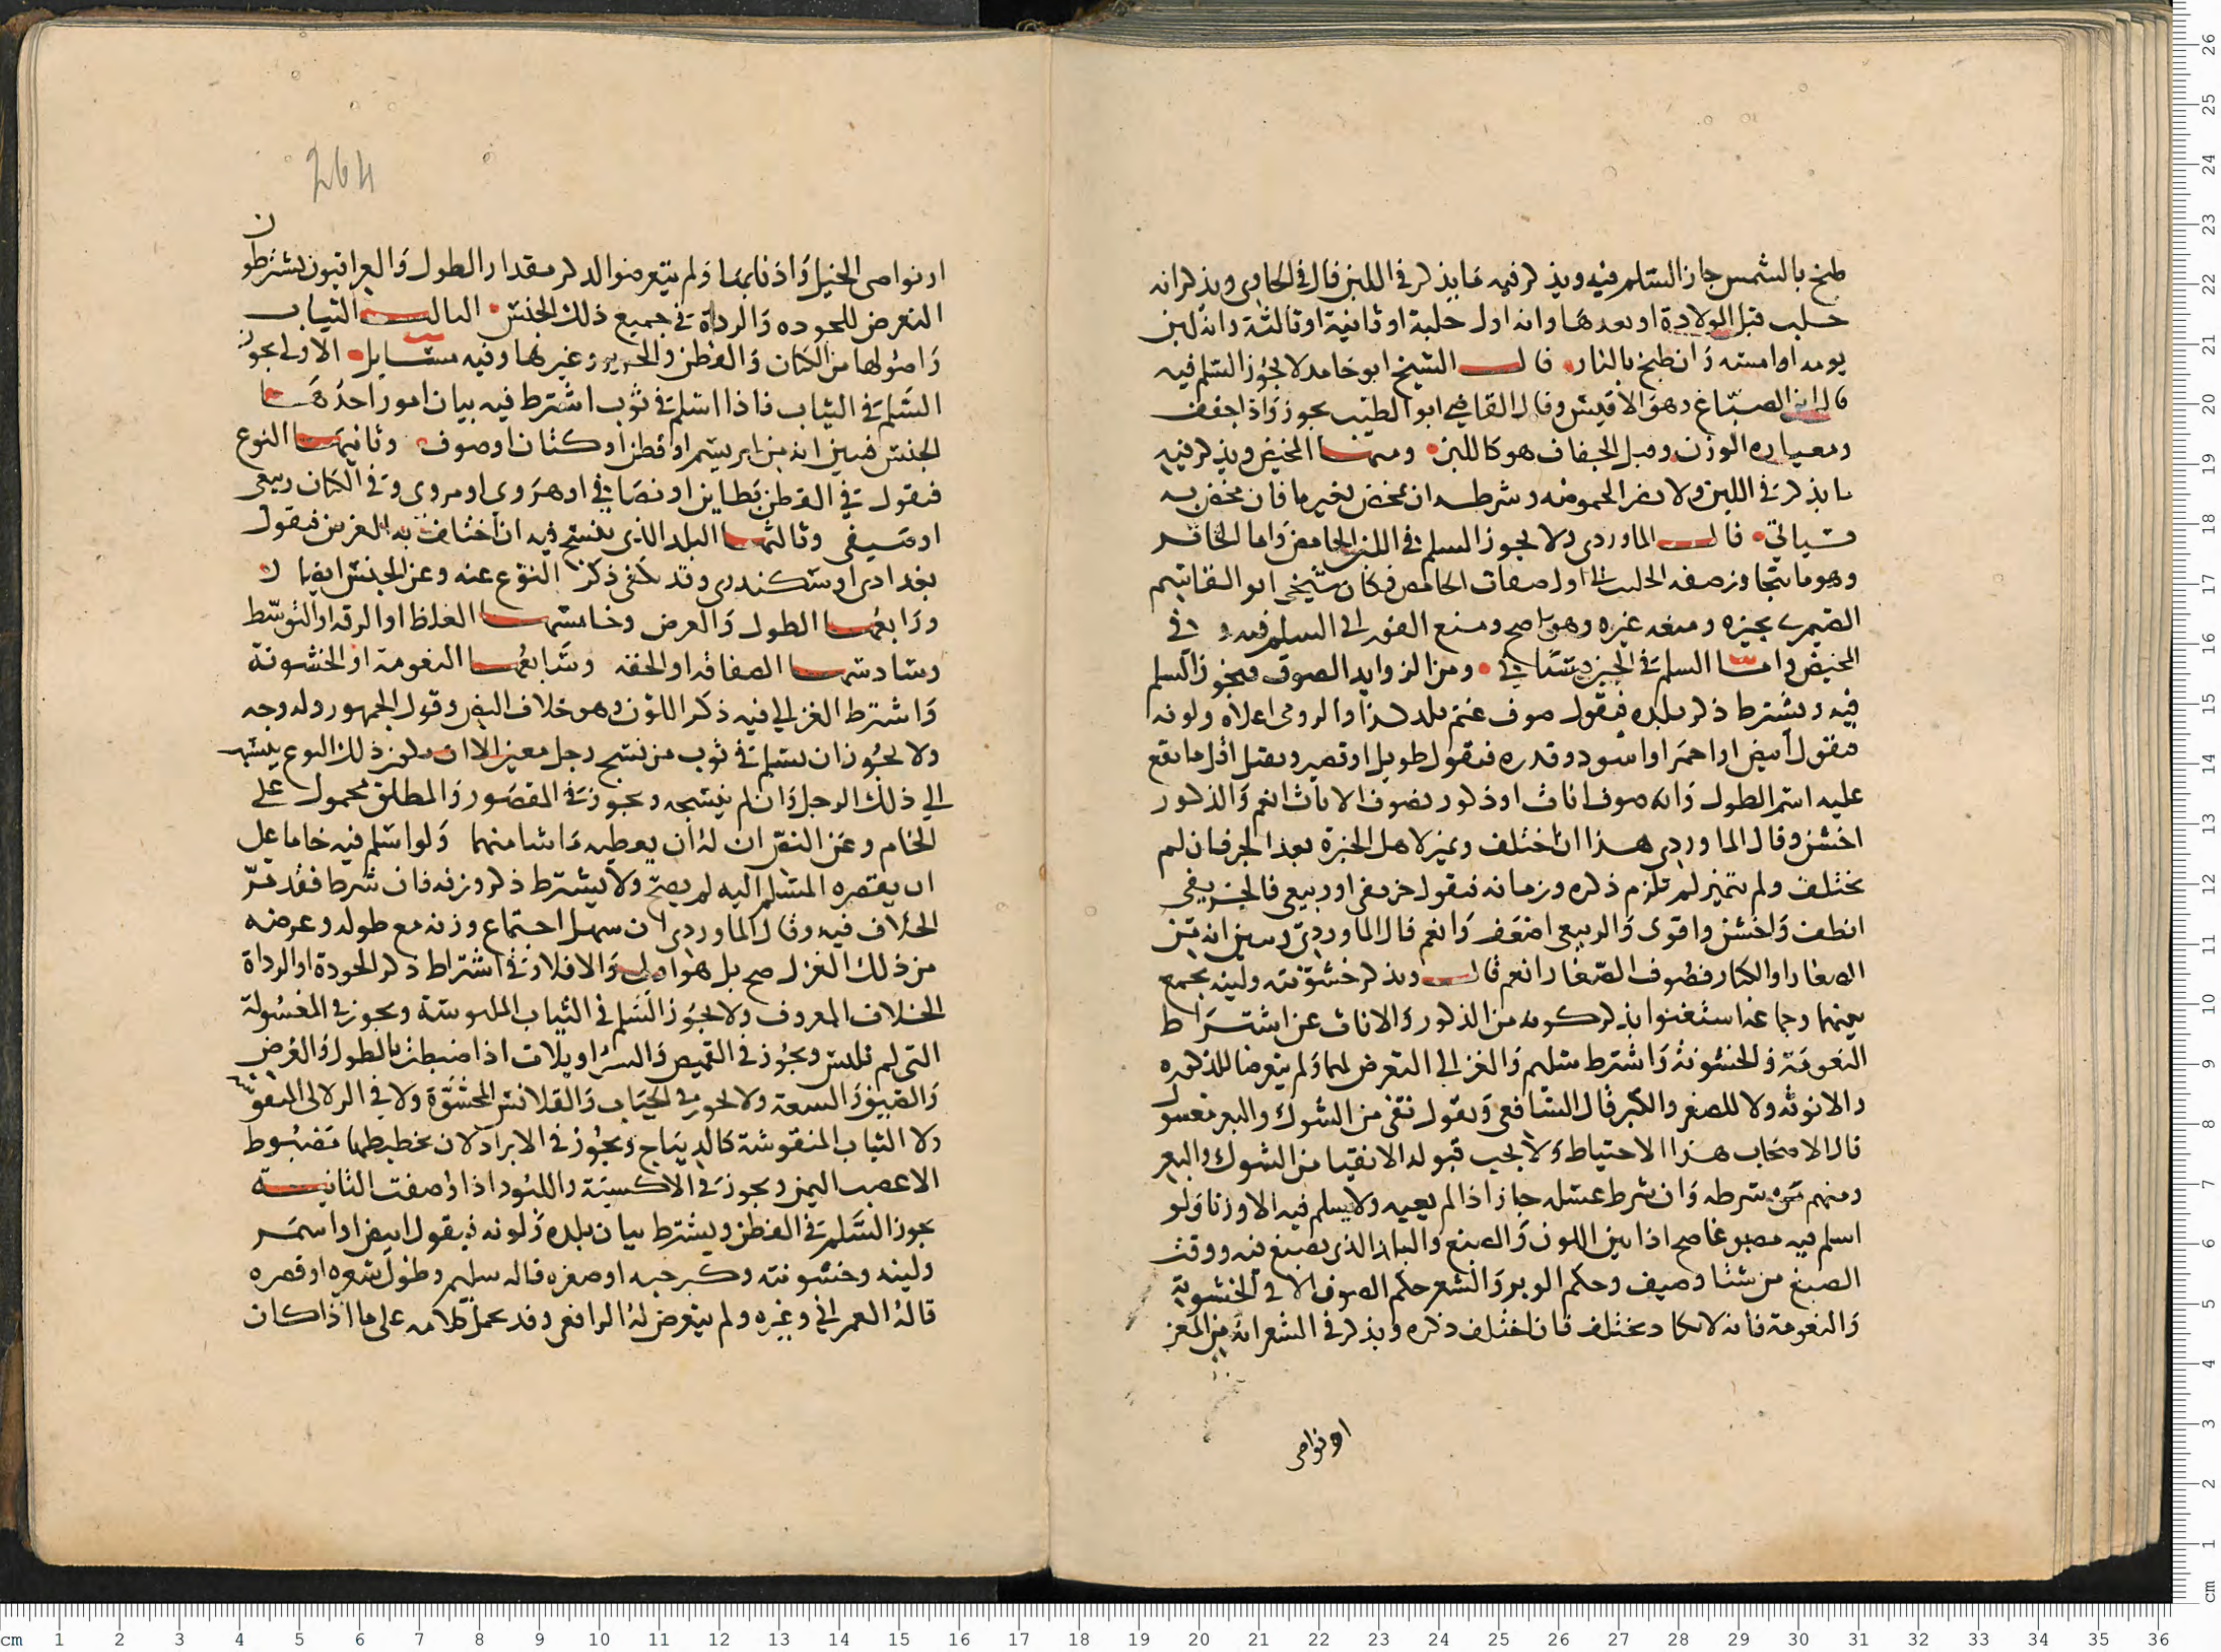 طبخ بالشمس جاز السلم فيه ويذكر فيه ما يذكر في اللبن قال في الحاوي ويذكر انه
حلب قبل الولادة او بعدها وانه اول حلبة او ثانية او ثالثة وانه لبن
يومه او امسه وان طبخ بالنار قال الشيخ ابو حامد لا يجوز السلم فيه
قال ابن الصباغ وهو الاقيس وقال القاضي ابو الطيب يجوز واذا جفف
ومعياره الوزن وقبل الجفاف هو كاللبن ومنها المخيض ويذكر فيه
ما يذكر في اللبن ولا يضر الحموضه وشرطه ان يمخض بغير ما فان مخض به
فسياتي قال الماوردي ولا يجوز السلم في اللبن الحامض واما الخاثر
وهو ما يتجاوز صفه الحليب الى اول صفات الحامض فكان شيخي ابو القاسم
الصيمري يجيزه ومنعه غيره وهو اصح ومنع الفوراني السلم فيه وفي
المخيض واما السلم في الجبن فسياتي ومن الزوايد الصوف فيجوز السلم
فيه ويشترط ذكر بلده فيقول صوف غنم بلد كذا والرومي اعلاه ولونه
فيقول ابيض او احمر او اسود وقدره فيقول طويل او قصير ويقبل اقل ما يقع
عليه اسم الطول وانه صوف اناث او ذكور فصوف الاناث انعم والذكور
اخشن وقال الماوردي هذا ان اختلف وتميز لاهل الخبرة بعد الجز فان لم
يختلف ولم يتميز لم يلزم ذكره وزمانه فيقول خريفي او ربيعي فالخريفي
انظف واخشن واقوى والربيعي اضعف وانعم قال الماوردي ويبين انه من
الصغار او الكبار فصوف الصغار انعم قال ويذكر خشونته ولينه يجمع
بينهما وجماعة استغنوا بذكر كونه من الذكور والاناث عن اشتراط
النعومة والخشونة واشترط سليم والغزالي التعرض لهما ولم يتعرضا للذكوره
والانوثه ولا للصغر والكبر قال الشافعي ويقول نقي من الشوك والبعر مغسول
قال الاصحاب هذا الاحتياط ولا يجب قبوله الا نقيا من الشوك والبعر
ومنهم من شرطه وان شرط غسله جاز اذا لم يعيبه ولا يسلم فيه الا وزنا ولو
اسلم فيه مصبوغا صح اذا بين اللون والصبغ والبلد الذي يصبغ فيه ووقت
الصبغ من شتا وصيف وحكم الوبر والشعر حكم الصوف الا في الخشونة
والنعومة فانه لا يكاد يختلف فان اختلف ذكره ويذكر في الشعر انه من المعز
او نواصي
264
او نواصي الخيل واذنابها ولم يتعرضوا لذكر مقدار الطول والعراقيون يشترطون
التعرض للجوده والرداة في جميع ذلك الجنس الثالث الثياب
واصولها من الكتان والقطن والحرير وغيرها وفيه مسايل الاولى يجوز
السلم في الثياب فاذا اسلم في ثوب اشترط فيه بيان امور احدها
الجنس فيبين انه من ابريسم او قطن او كتان او صوف وثانيها النوع
فيقول في القطن او هروي او مروي وفي الكتان ربيعي
او صيفي وثالثها البلد الذي ينسج فيه ان اختلف به الغرض فيقول
بغدادي او سكندري وقد يكفي ذكر النوع عنه وعن الجنس ايضا
ورابعها الطول والعرض وخامسها الغلظ او الرقه او التوسط
وسادسها الصفاقه او الخفه وسابعها النعومة او الخشونة
واشترط الغزالي فيه ذكر اللون وهو خلاف النص وقول الجمهور وله وجه
ولا يجوز ان يسلم في ثوب من نسج رجل معين الا ان يكون ذلك النوع ينسب
الى ذلك الرجل وان لم ينسجه ويجوز في المقصور والمطلق محمول على
الخام وعن النص ان له ان يعطيه ما شا منهما ولو اسلم فيه خاما على
ان يقصره المسلم اليه لم يصح ولا يشترط ذكر وزنه فان شرط فقد مر
الخلاف فيه وقال الماوردي ان سهل اجتماع وزنه مع طوله وعرضه
من ذلك الغزل صح بل هو اولى والا فلا وفي اشتراط ذكر الجودة او الرداة
الخلاف المعروف ولا يجوز السلم في الثياب الملبوسة ويجوز في المغسولة
التي لم تلبس ويجوز في القميص والسراويلات اذا ضبطت بالطول والعرض
والضيق والسعة ولا يجوز في الجباب والقلانس المحشوة ولا في
ولا الثياب المنقوشة كالديباج ويجوز في الابراد لان تخطيطها مضبوط
الا عصب اليمن ويجوز في الاكسية واللبود اذا وصفت الثانية
يجوز السلم في القطن ويشترط بيان بلده ولونه فيقول ابيض او اسمر
ولينه وخشونته وكبر حبه او صغره قاله سليم وطول شعره او قصره
قاله العمراني وغيره ولم يتعرض له الرافعي وقد يحمل كلامه على ما اذا كان